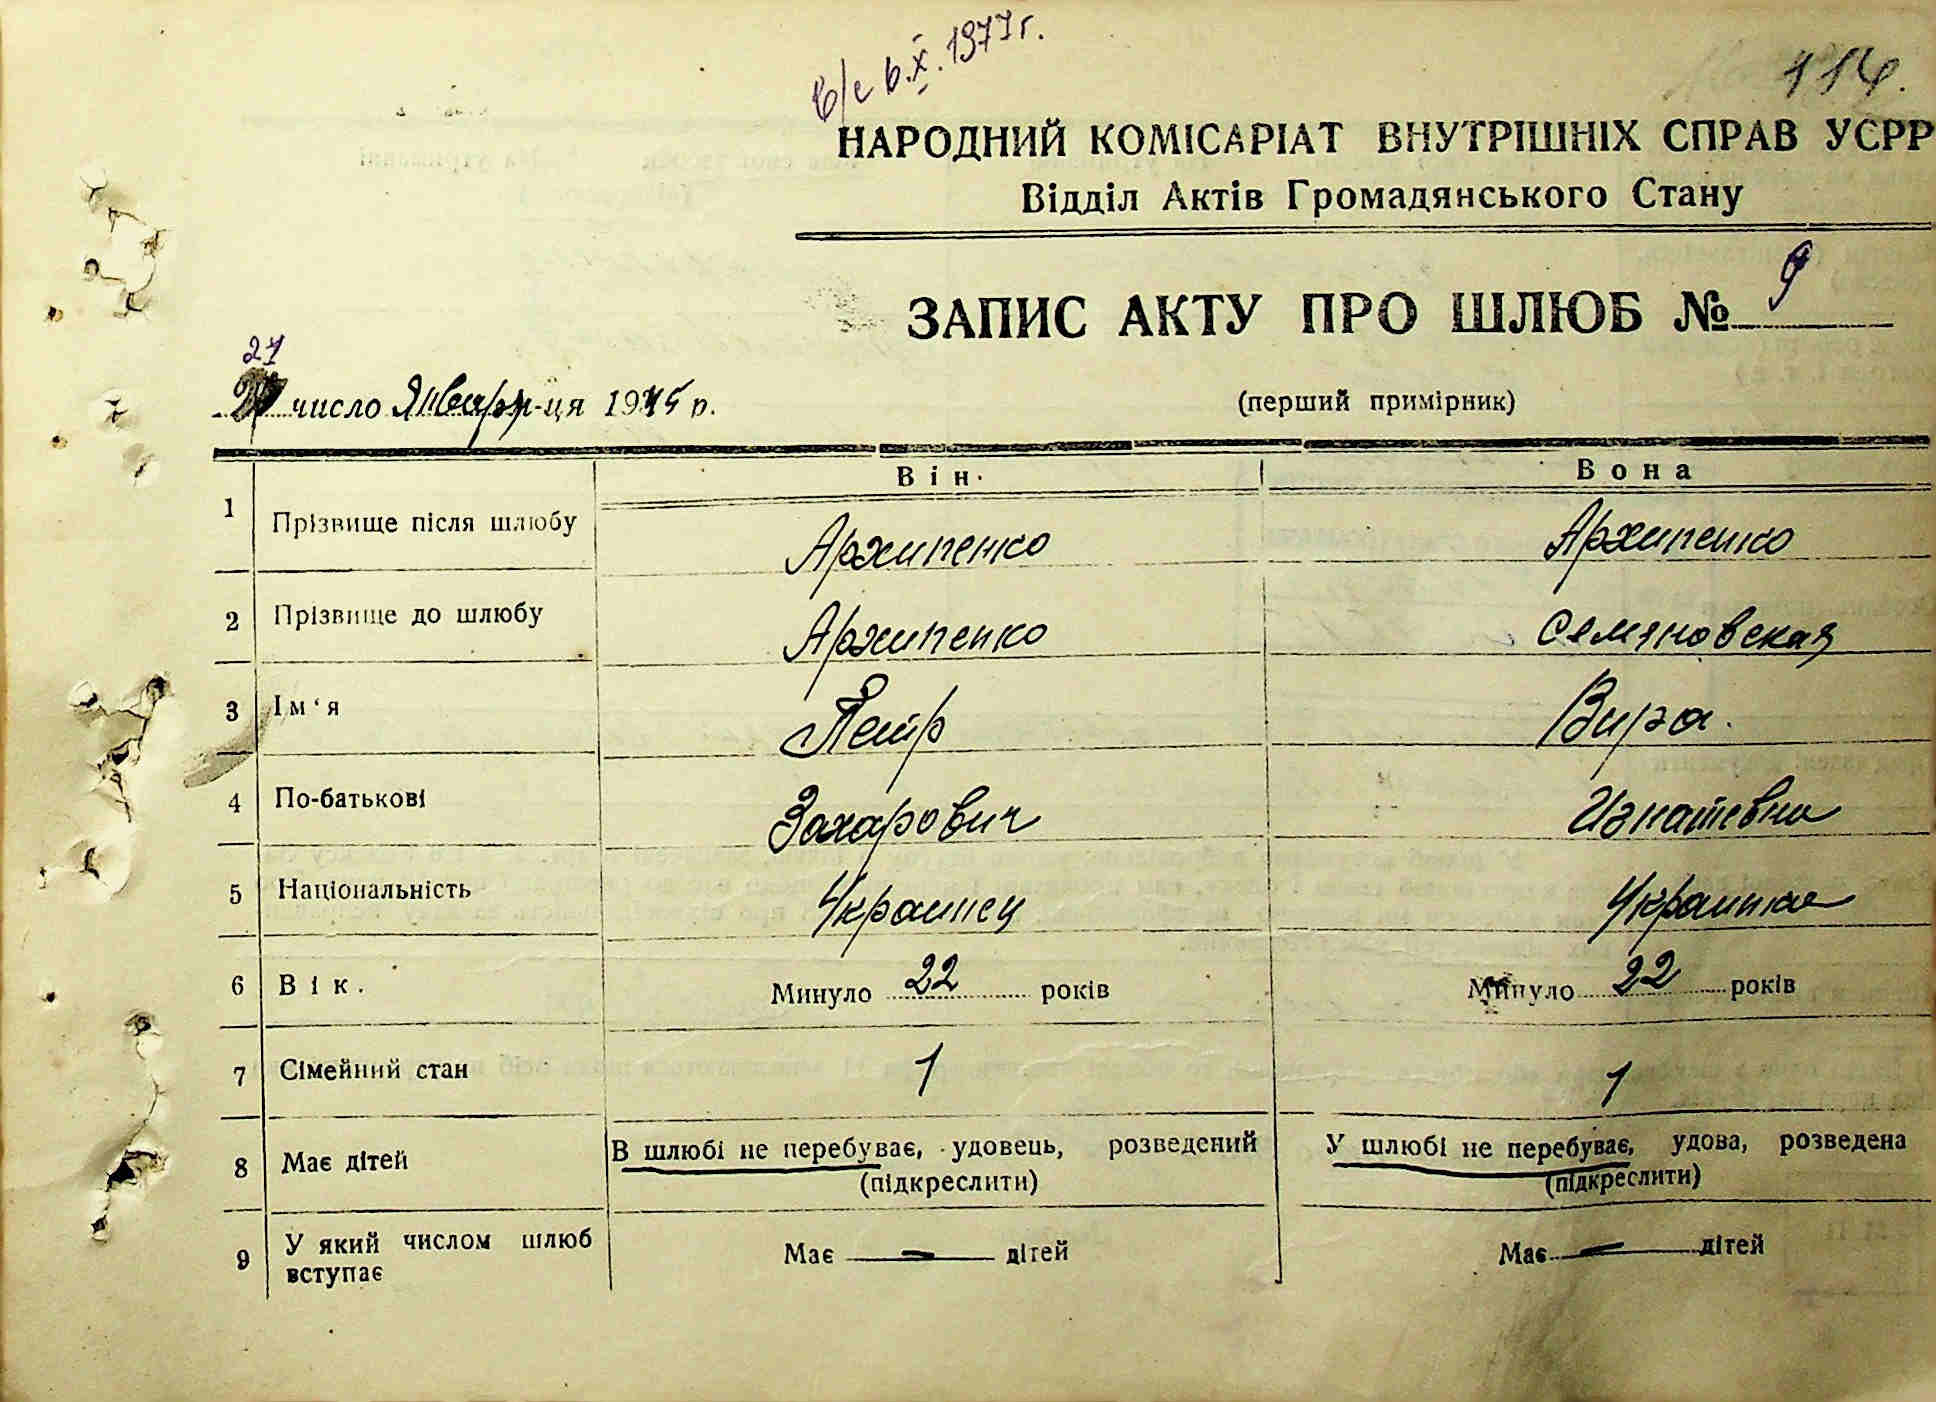 в/с 6.X.1977г.
114.
НАРОДНИЙ КОМІСАРІАТ ВНУТРІШНІХ СПРАВ УСРР
Відділ Актів Громадянського Стану
ЗАПИС АКТУ ПРО ШЛЮБ № 9
27
число Января-ця 1945 р.
(перший примірник)
Він. Вона
1 Прізвище після шлюбу Архипенко Архипенко
2 Прізвище до шлюбу Архипенко Семяновская
3 Ім‘я Петр Вира.
4 По-батькові Захарович Игнатевна
5 Національність Украинец Украинка
6 Вік. Минуло 22 років Минуло 22 років
7 Сімейний стан 1 1
8 Має дітей В шлюбі не перебуває, удовець, розведений У шлюбі не перебуває, удова, розведена
(підкреслити) (підкреслити)
9 У який числом шлюб вступає Має — дітей Має — дітей